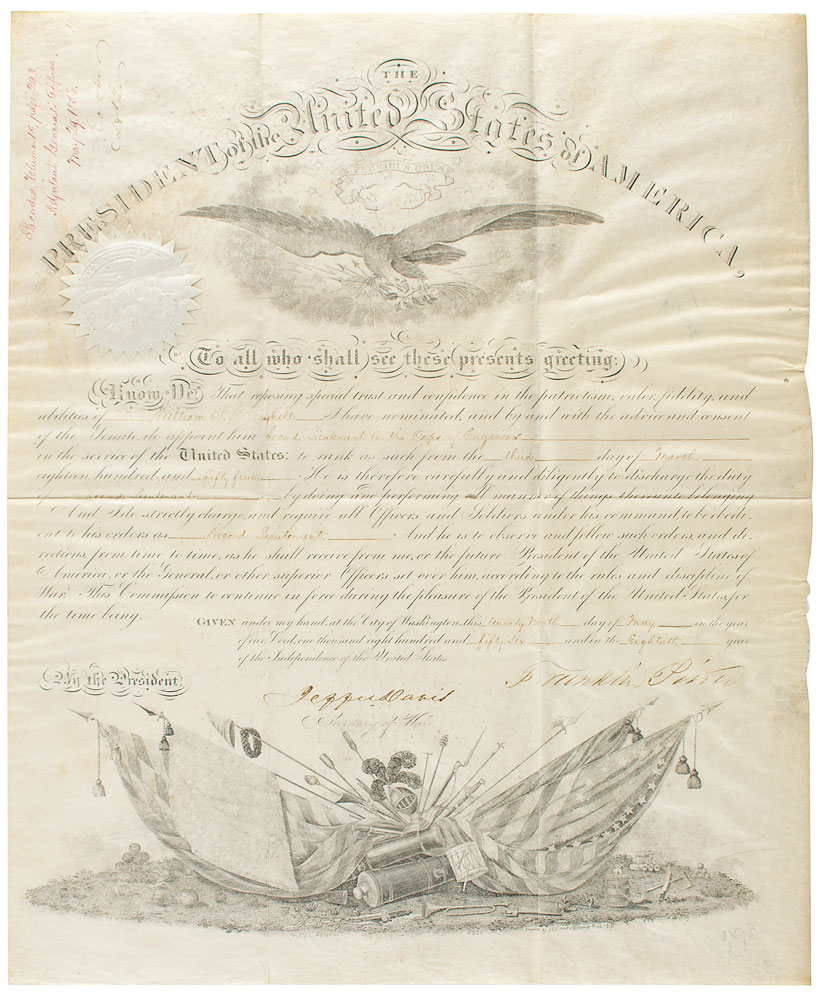 THE
PRESIDENT of the United States of AMERICA,
Recorded, Volume
Adjutant General's Office
May 29, 1856.
E PLURIBUS UNUM
To all who shall see these presents greeting:
Know Ye, That reposing special trust and confidence in the patriotism, valor, fidelity, and
abilities of William P. I have nominated, and by and with the advice and consent
of the Senate, do appoint him Second Lieutenant in the Corps of Engineers
in the service of the United States: to rank as such from the third day of March
eighteen hundred and fifty five. He is therefore carefully and diligently to discharge the duty
of Second Lieutenant by doing and performing all manner of things thereunto belonging
And I do strictly charge, and require all Officers and Soldiers under his command, to be obedi-
ent to his orders as Second Lieutenant. And he is to observe and follow such orders, and di-
rections, from time to time, as he shall receive from me, or the future President of the United States of
America, or the General, or other superior Officers set over him, according to the rules and discipline of
War. This Commission to continue in force during the pleasure of the President of the United States, for
the time being.
GIVEN under my hand, at the City of Washington, this twenty ninth day of May in the year
of our Lord, one thousand eight hundred and fifty six and in the Eightieth year
of the Independence of the United States.
By the President
Franklin Pierce
Jeffn Davis
Secretary of War.